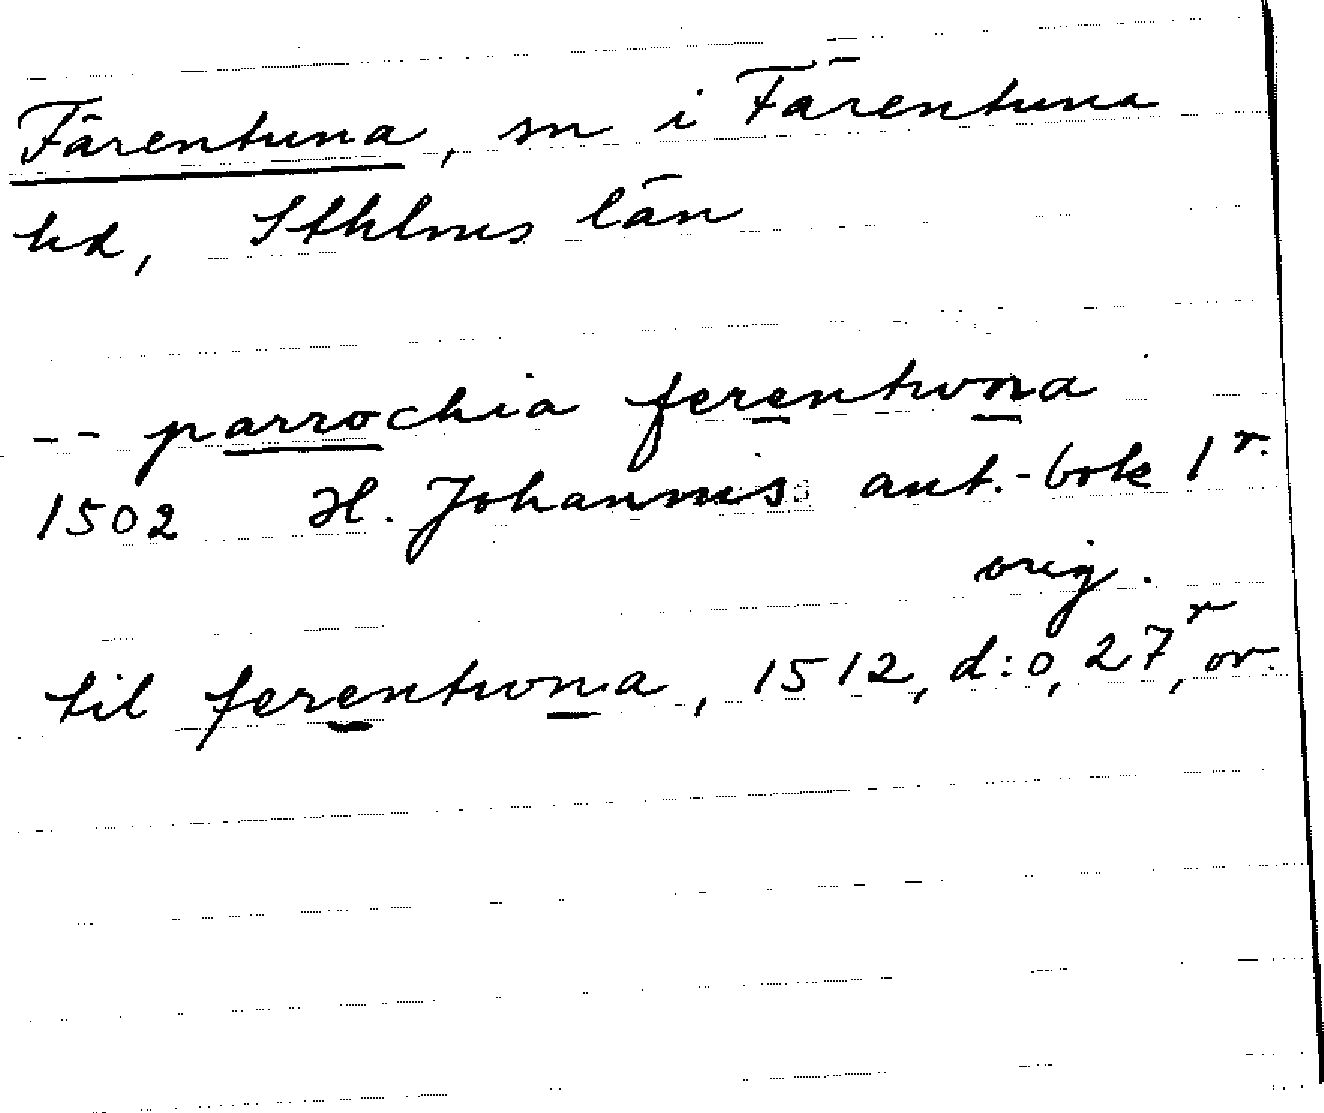 Färentuna, sn i Färentuna
hd, Sthlms län
-- parrochia ferentwna
1502 H. Johannis ant.-bok 1r.
orig.
til ferentwna, 1512, d:o, 27r, or.